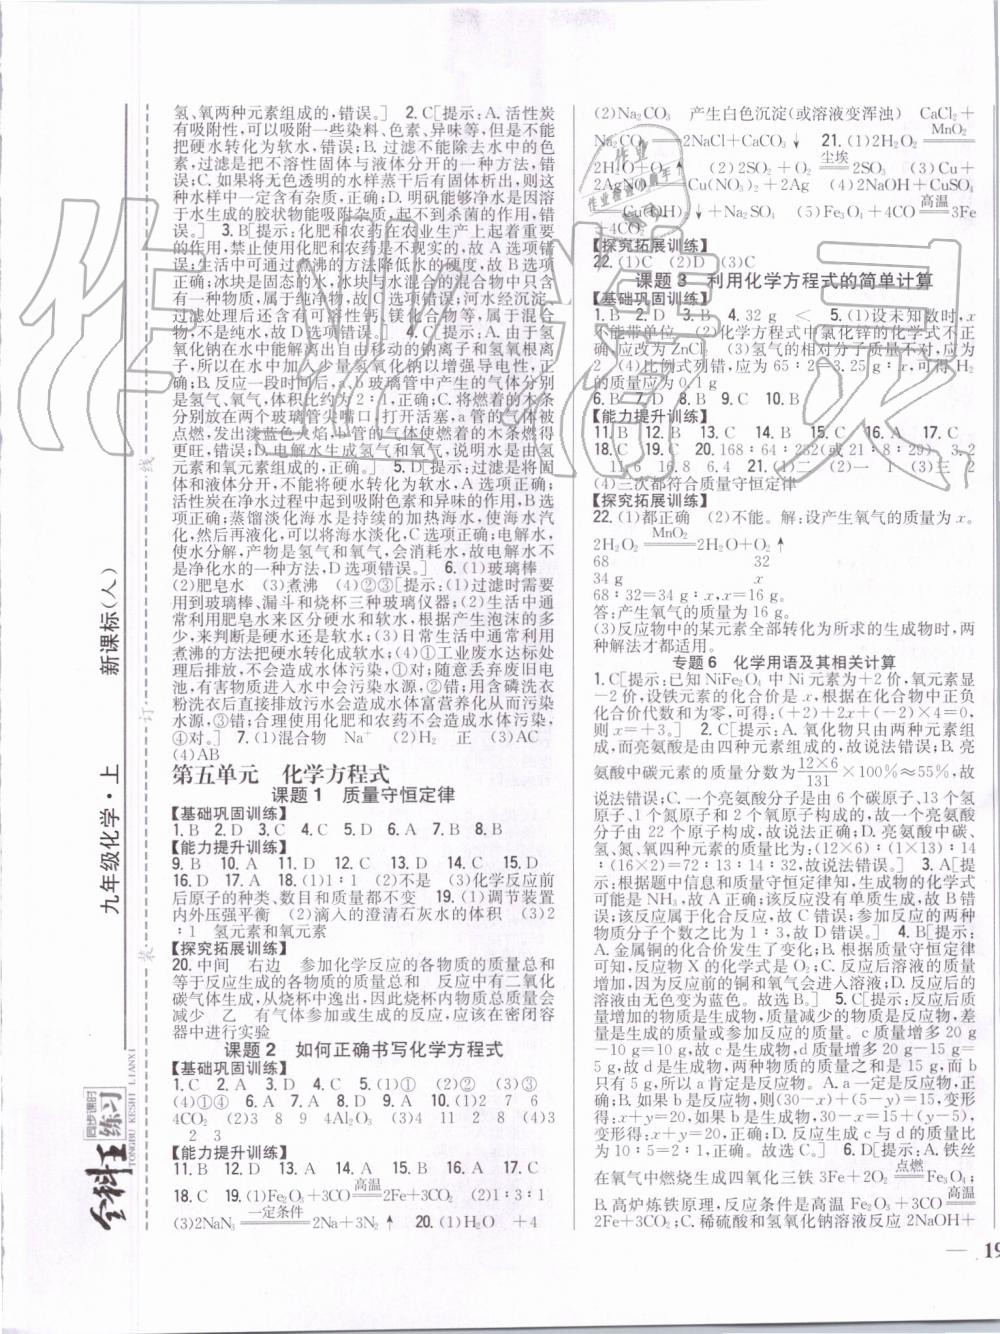 氢、氧两种元素组成的,错误。] 2. C[提示:A. 活性炭
有吸附性,可以吸附一些染料、色素、异味等,但是不能
把硬水转化为软水,错误;B. 过滤不能除去水中的色
素,过滤是把不溶性固体与液体分开的一种方法,错
误;C. 如果将无色透明的水样蒸干后有固体析出,则这
种水样中一定含有杂质,正确;D. 明矾能够净水是因溶
于水生成的胶状物质能吸附杂质,起不到杀菌的作用,错
误。] 3. B[提示:化肥和农药在农业生产上起着重要
的作用,禁止使用化肥和农药是不现实的,故 A 选项错
误;生活中可通过煮沸的方法降低水的硬度,故 B 选项
正确;冰块是固态的水,冰块与水混合的混合物中只含
有一种物质,属于纯净物,故 C 选项错误;河水经沉淀、
过滤处理后还含有可溶性钙、镁化合物等,属于混合
物,不是纯水,故 D 选项错误。] 4. C[提示:A. 由于氢
氧化钠在水中能解离出自由移动的钠离子和氢氧根离
子,所以在水中加入少量氢氧化钠以增强导电性,正
确;B. 反应一段时间后,a、b 玻璃管中产生的气体分别
是氢气、氧气,体积比约为 2∶1,正确;C. 将燃着的木条
分别放在两个玻璃管尖嘴口,打开活塞,a 管的气体被
点燃,发出淡蓝色火焰,b 管的气体使燃着的木条燃得
更旺,错误;D. 电解水生成氢气和氧气,说明水是由氢
元素和氧元素组成的,正确。] 5. D[提示:过滤是将固
体和液体分开,不能将硬水转化为软水,A 选项正确;
活性炭在净水过程中起到吸附色素和异味的作用,B 选
项正确;蒸馏淡化海水是持续的加热海水,使海水汽
化,然后再液化,可以将海水淡化,C 选项正确;电解水,
使水分解,产物是氢气和氧气,会消耗水,故电解水不
是净化水的一种方法,D 选项错误。] 6. (1)玻璃棒
(2)肥皂水 (3)煮沸 (4)②③[提示:(1)过滤时需要
用到玻璃棒、漏斗和烧杯三种玻璃仪器;(2)生活中通
常利用肥皂水来区分硬水和软水,根据产生泡沫的多
少,来判断是硬水还是软水;(3)日常生活中通常利用
煮沸的方法把硬水转化成软水;(4)①工业废水达标处
理后排放,不会造成水体污染,①对;随意丢弃废旧电
池,有害物质进入水中会污染水源,②错;用含磷洗衣
粉洗衣后直接排放污水会造成水体富营养化从而污染
水源,③错;合理使用化肥和农药不会造成水体污染,
④对。] 7. (1)混合物 Na⁺ (2)H₂ 正 (3)AC
(4)AB
第五单元 化学方程式
课题 1 质量守恒定律
【基础巩固训练】
1. B 2. D 3. C 4. C 5. D 6. A 7. B 8. B
【能力提升训练】
9. B 10. A 11. D 12. D 13. C 14. C 15. D
16. D 17. A 18. (1)1∶1 (2)不是 (3)化学反应前
后原子的种类、数目和质量都不变 19. (1)调节装置
内外压强平衡 (2)滴入的澄清石灰水的体积 (3)2
∶1 氢元素和氧元素
【探究拓展训练】
20. 中间 右边 参加化学反应的各物质的质量总和
等于反应生成的各物质的质量总和 反应中有二氧化
碳气体生成,从烧杯中逸出,因此烧杯内物质总质量会
减少 乙 有气体参加或生成的反应,应该在密闭容
器中进行实验
课题 2 如何正确书写化学方程式
【基础巩固训练】
1. C 2. A 3. D 4. C 5. (1)① (2)② (3)③
(4)①④ 6. A 7. D 8. A 9. A 10. (1)2 7 6
4CO₂ (2)3 8 9 4Al₂O₃ (3)4 11 2 8 (4)3
2 3
【能力提升训练】
11. B 12. D 13. A 14. A 15. A 16. A 17. C
18. C 19. (1)Fe₂O₃+3CO 高温 2Fe+3CO₂ (2)1∶3∶1
(3)2NaN₃ 一定条件 2Na+3N₂↑ 20. (1)H₂O +4
(2)Na₂CO₃ 产生白色沉淀(或溶液变浑浊) CaCl₂+
Na₂CO₃ 2NaCl+CaCO₃↓ 21. (1)2H₂O₂ MnO₂
2H₂O+O₂↑ (2)2SO₂+O₂ 尘埃 2SO₃ (3)Cu+
2AgNO₃ Cu(NO₃)₂+2Ag (4)2NaOH+CuSO₄
Cu(OH)₂↓+Na₂SO₄ (5)Fe₃O₄+4CO 高温 3Fe
+4CO₂
【探究拓展训练】
22. (1)C (2)D (3)C
课题 3 利用化学方程式的简单计算
【基础巩固训练】
1. B 2. D 3. B 4. 32 g < 5. (1)设未知数时,x
不能带单位 (2)化学方程式中氯化锌的化学式不正
确,应改为 ZnCl₂ (3)氢气的相对分子质量不对,应为
2 (4)比例式列错,应为 65∶2=3.25 g∶x,可得 H₂
的质量应为 0.1 g
6. B 7. D 8. B 9. C 10. B
【能力提升训练】
11. B 12. B 13. C 14. B 15. C 16. A 17. C
18. C 19. C 20. 168∶64∶232(或 21∶8∶29) 3.2
11.6 16.8 6.4 21. (1)二 (2)一 1 (3)三 2
(4)三次都符合质量守恒定律
【探究拓展训练】
22. (1)都正确 (2)不能。解:设产生氧气的质量为 x。
2H₂O₂ MnO₂ 2H₂O+O₂↑
68 32
34 g x
68∶32=34 g∶x,x=16 g。
答:产生氧气的质量为 16 g。
(3)反应物中的某元素全部转化为所求的生成物时,两
种解法才都适用。
专题 6 化学用语及其相关计算
1. C[提示:已知 NiFe₂O₄ 中 Ni 元素为+2 价,氧元素显
-2 价,设铁元素的化合价是 x,根据在化合物中正负
化合价代数和为零,可得:(+2)+2x+(-2)×4=0,
则 x=+3。] 2. C[提示:A. 氧化物只由两种元素组
成,而亮氨酸是由四种元素组成的,故说法错误;B. 亮
氨酸中碳元素的质量分数为 12×6/131 ×100%≈55%,故
说法错误;C. 一个亮氨酸分子是由 6 个碳原子、13 个氢
原子、1 个氮原子和 2 个氧原子构成的,故一个亮氨酸
分子由 22 个原子构成,故说法正确;D. 亮氨酸中碳、
氢、氮、氧四种元素的质量比为:(12×6)∶(1×13)∶14
∶(16×2)=72∶13∶14∶32,故说法错误。] 3. A[提
示:根据题中信息和质量守恒定律知,生成物的化学式
可能是 NH₃,故 A 正确;该反应没有单质生成,故 B 错
误;该反应属于化合反应,故 C 错误;参加反应的两种
物质分子个数之比为 1∶3,故 D 错误。] 4. B[提示:
A. 金属铜的化合价发生了变化;B. 根据质量守恒定律
可知,反应物 X 的化学式是 O₂;C. 反应后溶液的质量
增加,因为反应前的铜和氧气会进入溶液;D. 反应后的
溶液由无色变为蓝色。故选 B。] 5. C[提示:反应后质
量增加的物质是生成物,质量减少的物质是反应物,差
量是生成的质量或参加反应的质量。c 质量增多 20 g
-10 g=10 g,故 c 是生成物,d 质量增多 20 g-15 g=
5 g,故 d 是生成物,两种生成物的质量之和是 15 g,而 b
只有 5 g,所以 a 肯定是反应物。A. a 一定是反应物,正
确;B. 如果 b 是反应物,则(30-x)+(5-y)=15,变形
得:x+y=20,如果 b 是生成物,30-x=15+(y-5),
变形得:x+y=20,正确;D. 反应生成 c 与 d 的质量比
为 10∶5=2∶1,正确。故选 C。] 6. D[提示:A. 铁丝
在氧气中燃烧生成四氧化三铁 3Fe+2O₂ 点燃 Fe₃O₄;
B. 高炉炼铁原理,反应条件是高温 Fe₂O₃+3CO 高温
2Fe+3CO₂;C. 稀硫酸和氢氧化钠溶液反应 2NaOH+
— 19
九年级化学·上 新课标(人)
装 订 线
全科王
同步课时
练习
TONGBU KESHI LIANXI
作业精灵